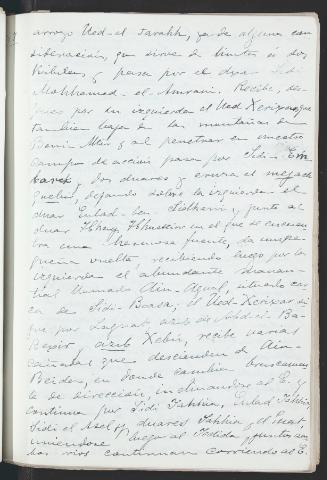 arroyo Ued-el Jarakh, ya de alguna con
sideración, que sirve de límite á dos
Kabilas, y pasa por el duar Sidi
Mohhamed-el-Amrani. Recibe, des
pues por su izquierda el Ued Xerixar que
tambien baja de las montañas de
Beni Mur y al penetrar en nuestro
campo de accion pasa por Sidi-Em
barek, dos duares y cruza el
dejando sobre la izquierda el
duar Eulad-ben- y junto al
duar en el que se encuen
tra una hermosa fuente, da una pe
queña vuelta recibiendo luego por la
izquierda el abundante manan
tial llamado Ain-Aqual, situado cer
ca de Sidi-Buasa; el Ued-Xerixar si
gue por azib de Abd-el Ba
azib Xebir, recibe varias
cañadas que descienden de Ain-
Beida, en donde cambia bruscamen
te de dirección, inclinandose al E. y
continua por Sidi Tahhia, Eulad Tahhia
Sidi el Asel y duares Tahhia y el
uniendose luego al y juntos am
bos rios continuan corriendo al E.